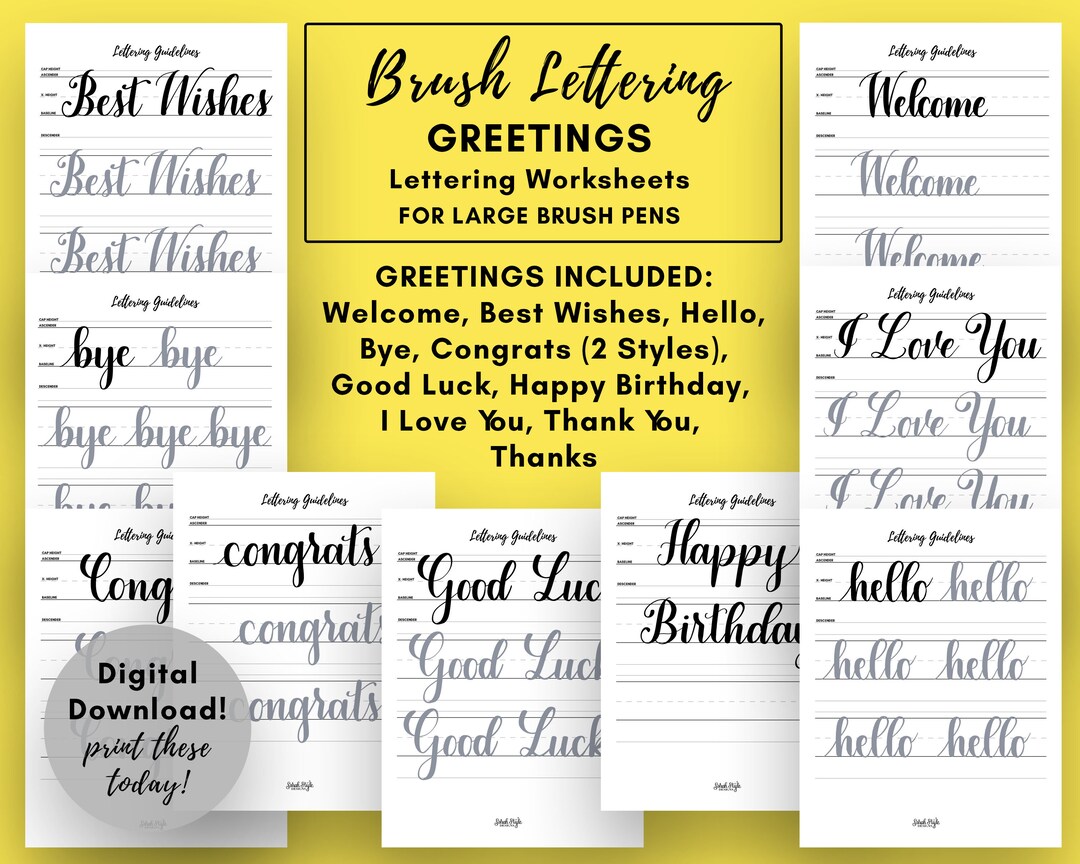 Lettering Guidelines
CAP HEIGHT
ASCENDER
X- HEIGHT
BASELINE
DESCENDER
Best Wishes
Best Wishes
Best Wishes
Brush Lettering
GREETINGS
Lettering Worksheets
FOR LARGE BRUSH PENS
GREETINGS INCLUDED:
Welcome, Best Wishes, Hello,
Bye, Congrats (2 Styles),
Good Luck, Happy Birthday,
I Love You, Thank You,
Thanks
Lettering Guidelines
CAP HEIGHT
ASCENDER
X- HEIGHT
BASELINE
DESCENDER
Welcome
Welcome
Welcome
Lettering Guidelines
CAP HEIGHT
ASCENDER
X- HEIGHT
BASELINE
DESCENDER
bye bye
bye bye bye
bye by
Lettering Guidelines
CAP HEIGHT
ASCENDER
X- HEIGHT
BASELINE
DESCENDER
I Love You
I Love You
I Love You
Lettering Gui
CAP HEIGHT
ASCENDER
X- HEIGHT
BASELINE
DESCENDER
Cong
Cong
Digital
Download!
print these
today!
Lettering Guidelines
CAP HEIGHT
ASCENDER
X- HEIGHT
BASELINE
DESCENDER
congrats
congrats
congrats
Lettering Guidelines
CAP HEIGHT
ASCENDER
X- HEIGHT
BASELINE
DESCENDER
Good Luc
Good Luck
Good Luck
Lettering Guidelines
CAP HEIGHT
ASCENDER
X- HEIGHT
BASELINE
DESCENDER
Happy
Birthday
Lettering Guidelines
CAP HEIGHT
ASCENDER
X- HEIGHT
BASELINE
DESCENDER
hello hello
hello hello
hello hello